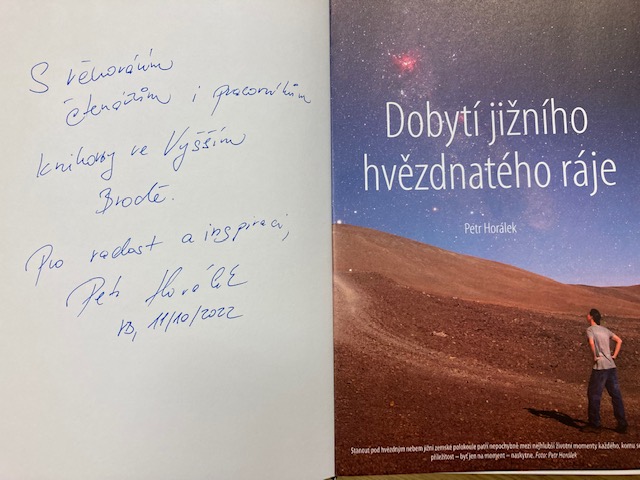 S věnováním
čtenářům i pracovníkům
knihovny ve Vyšším
Brodě.
Pro radost a inspiraci,
Petr Horálek
VB, 11/10/2022
Dobytí jižního
hvězdnatého ráje
Petr Horálek
Stanout pod hvězdným nebem jižní zemské polokoule patří nepochybně mezi nejhlubší životní momenty každého, komu se
příležitost – byť jen na moment – naskytne. Foto: Petr Horálek